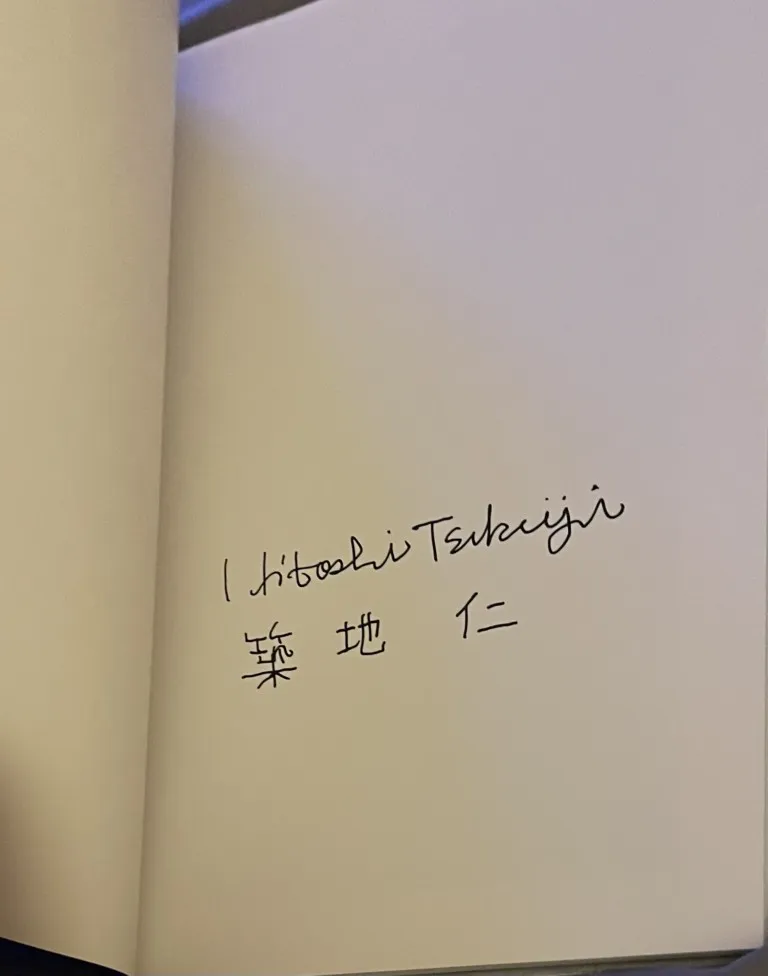 Hitoshi Tsukiji
築地 仁